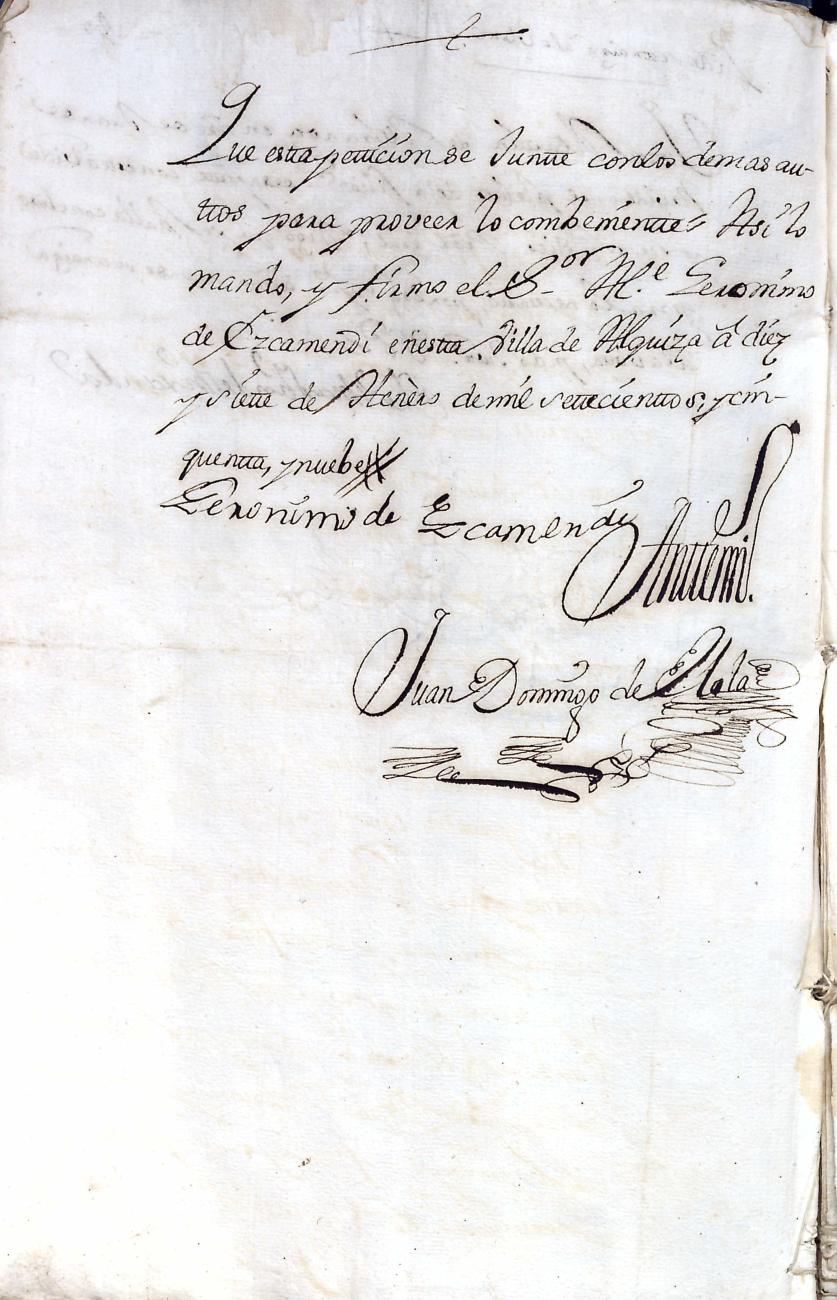 Que esta peticion se Junte con los demas au-
tos para proveer lo combeniente Asi lo
mando, y firmo el S.or Al.e Geronimo
de Ezcamendi en esta Villa de Alquiza a diez
y siete de Henero de mil setecientos, y cin-
quenta, y nuebe
Geronimo de Ezcamendi
Antemi.
Juan Domingo de